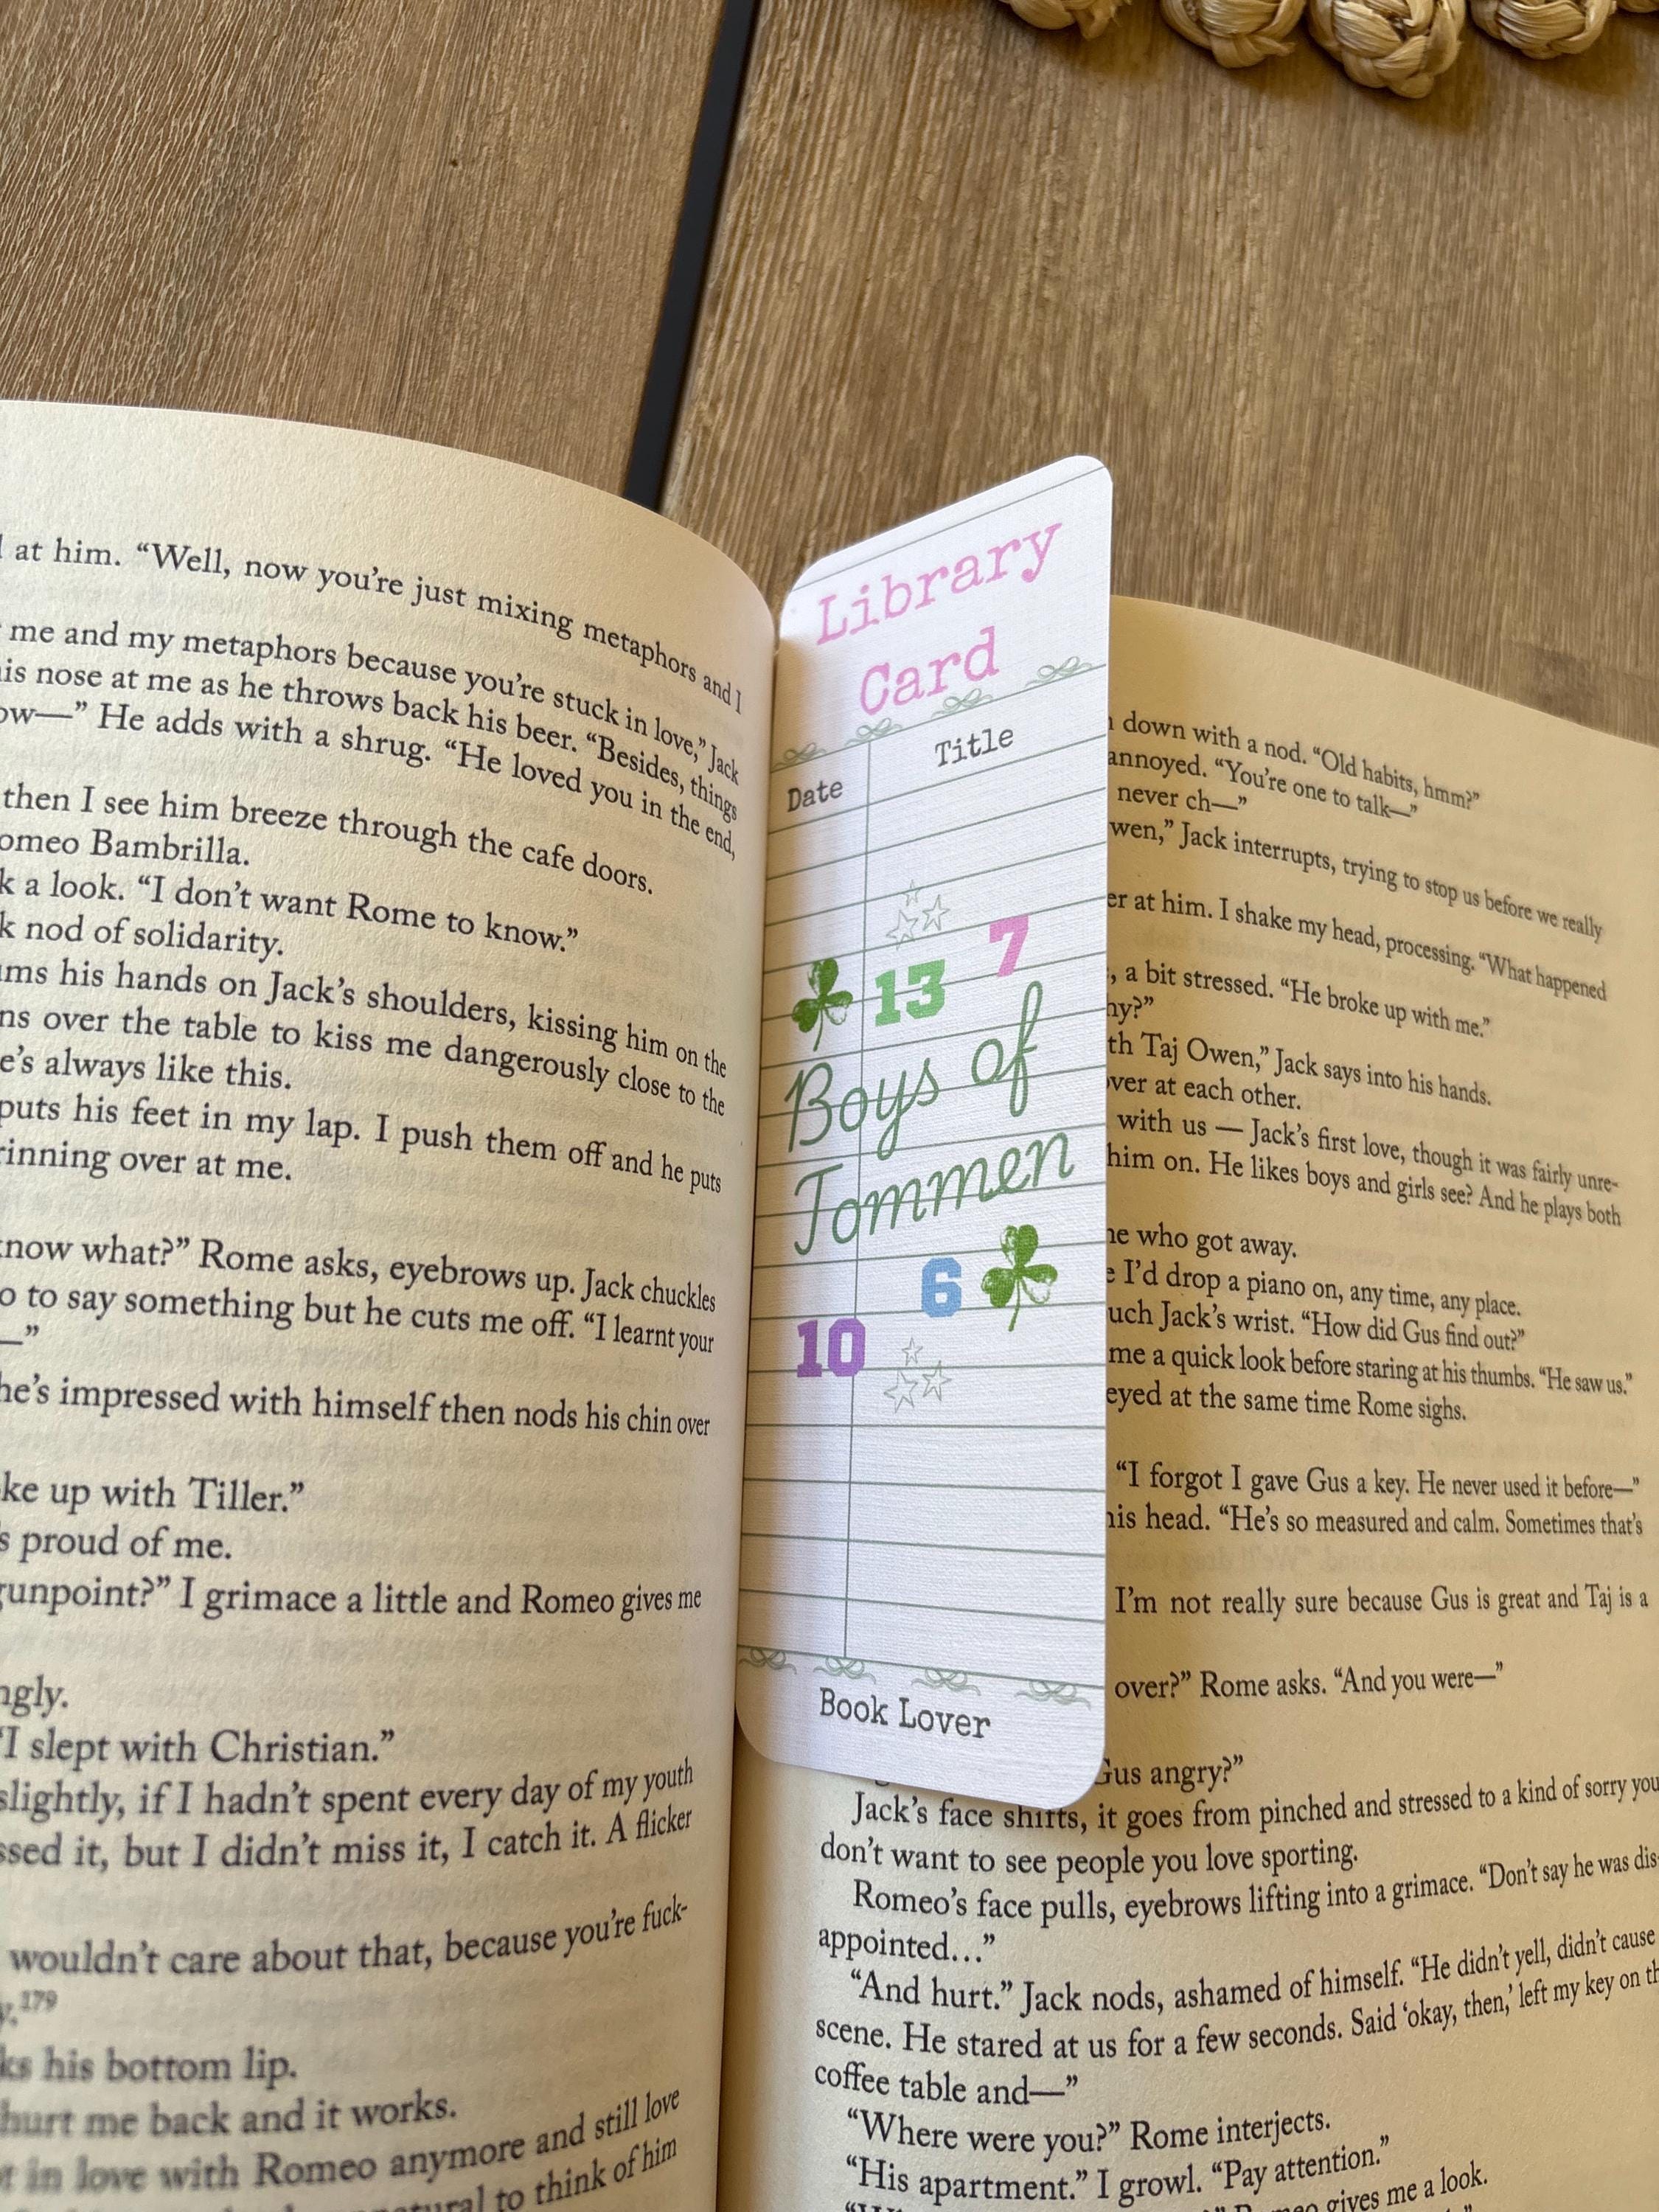 at him. “Well, now you’re just mixing metaphors and I
me and my metaphors because you’re stuck in love,” Jack
his nose at me as he throws back his beer. “Besides, things
ow—” He adds with a shrug. “He loved you in the end,
then I see him breeze through the cafe doors.
omeo Bambrilla.
k a look. “I don’t want Rome to know.”
k nod of solidarity.
ms his hands on Jack’s shoulders, kissing him on the
ns over the table to kiss me dangerously close to the
e’s always like this.
puts his feet in my lap. I push them off and he puts
rinning over at me.
know what?” Rome asks, eyebrows up. Jack chuckles
o to say something but he cuts me off. “I learnt your
—”
he’s impressed with himself then nods his chin over
ke up with Tiller.”
s proud of me.
gunpoint?” I grimace a little and Romeo gives me
ngly.
“I slept with Christian.”
slightly, if I hadn’t spent every day of my youth
ssed it, but I didn’t miss it, I catch it. A flicker
wouldn’t care about that, because you’re fuck-
y.179
ks his bottom lip.
hurt me back and it works.
t in love with Romeo anymore and still love
natural to think of him
Library
Card
Date Title
13 7
Boys of
Tommen
6
10
Book Lover
down with a nod. “Old habits, hmm?”
annoyed. “You’re one to talk—”
never ch—”
wen,” Jack interrupts, trying to stop us before we really
er at him. I shake my head, processing. “What happened
, a bit stressed. “He broke up with me.”
hy?”
th Taj Owen,” Jack says into his hands.
over at each other.
with us — Jack’s first love, though it was fairly unre-
him on. He likes boys and girls see? And he plays both
ne who got away.
e I’d drop a piano on, any time, any place.
uch Jack’s wrist. “How did Gus find out?”
me a quick look before staring at his thumbs. “He saw us.”
eyed at the same time Rome sighs.
“I forgot I gave Gus a key. He never used it before—”
his head. “He’s so measured and calm. Sometimes that’s
I’m not really sure because Gus is great and Taj is a
over?” Rome asks. “And you were—”
Gus angry?”
Jack’s face shifts, it goes from pinched and stressed to a kind of sorry you
don’t want to see people you love sporting.
Romeo’s face pulls, eyebrows lifting into a grimace. “Don’t say he was dis-
appointed…”
“And hurt.” Jack nods, ashamed of himself. “He didn’t yell, didn’t cause
scene. He stared at us for a few seconds. Said ‘okay, then,’ left my key on th
coffee table and—”
“Where were you?” Rome interjects.
“His apartment.” I growl. “Pay attention.”
gives me a look.